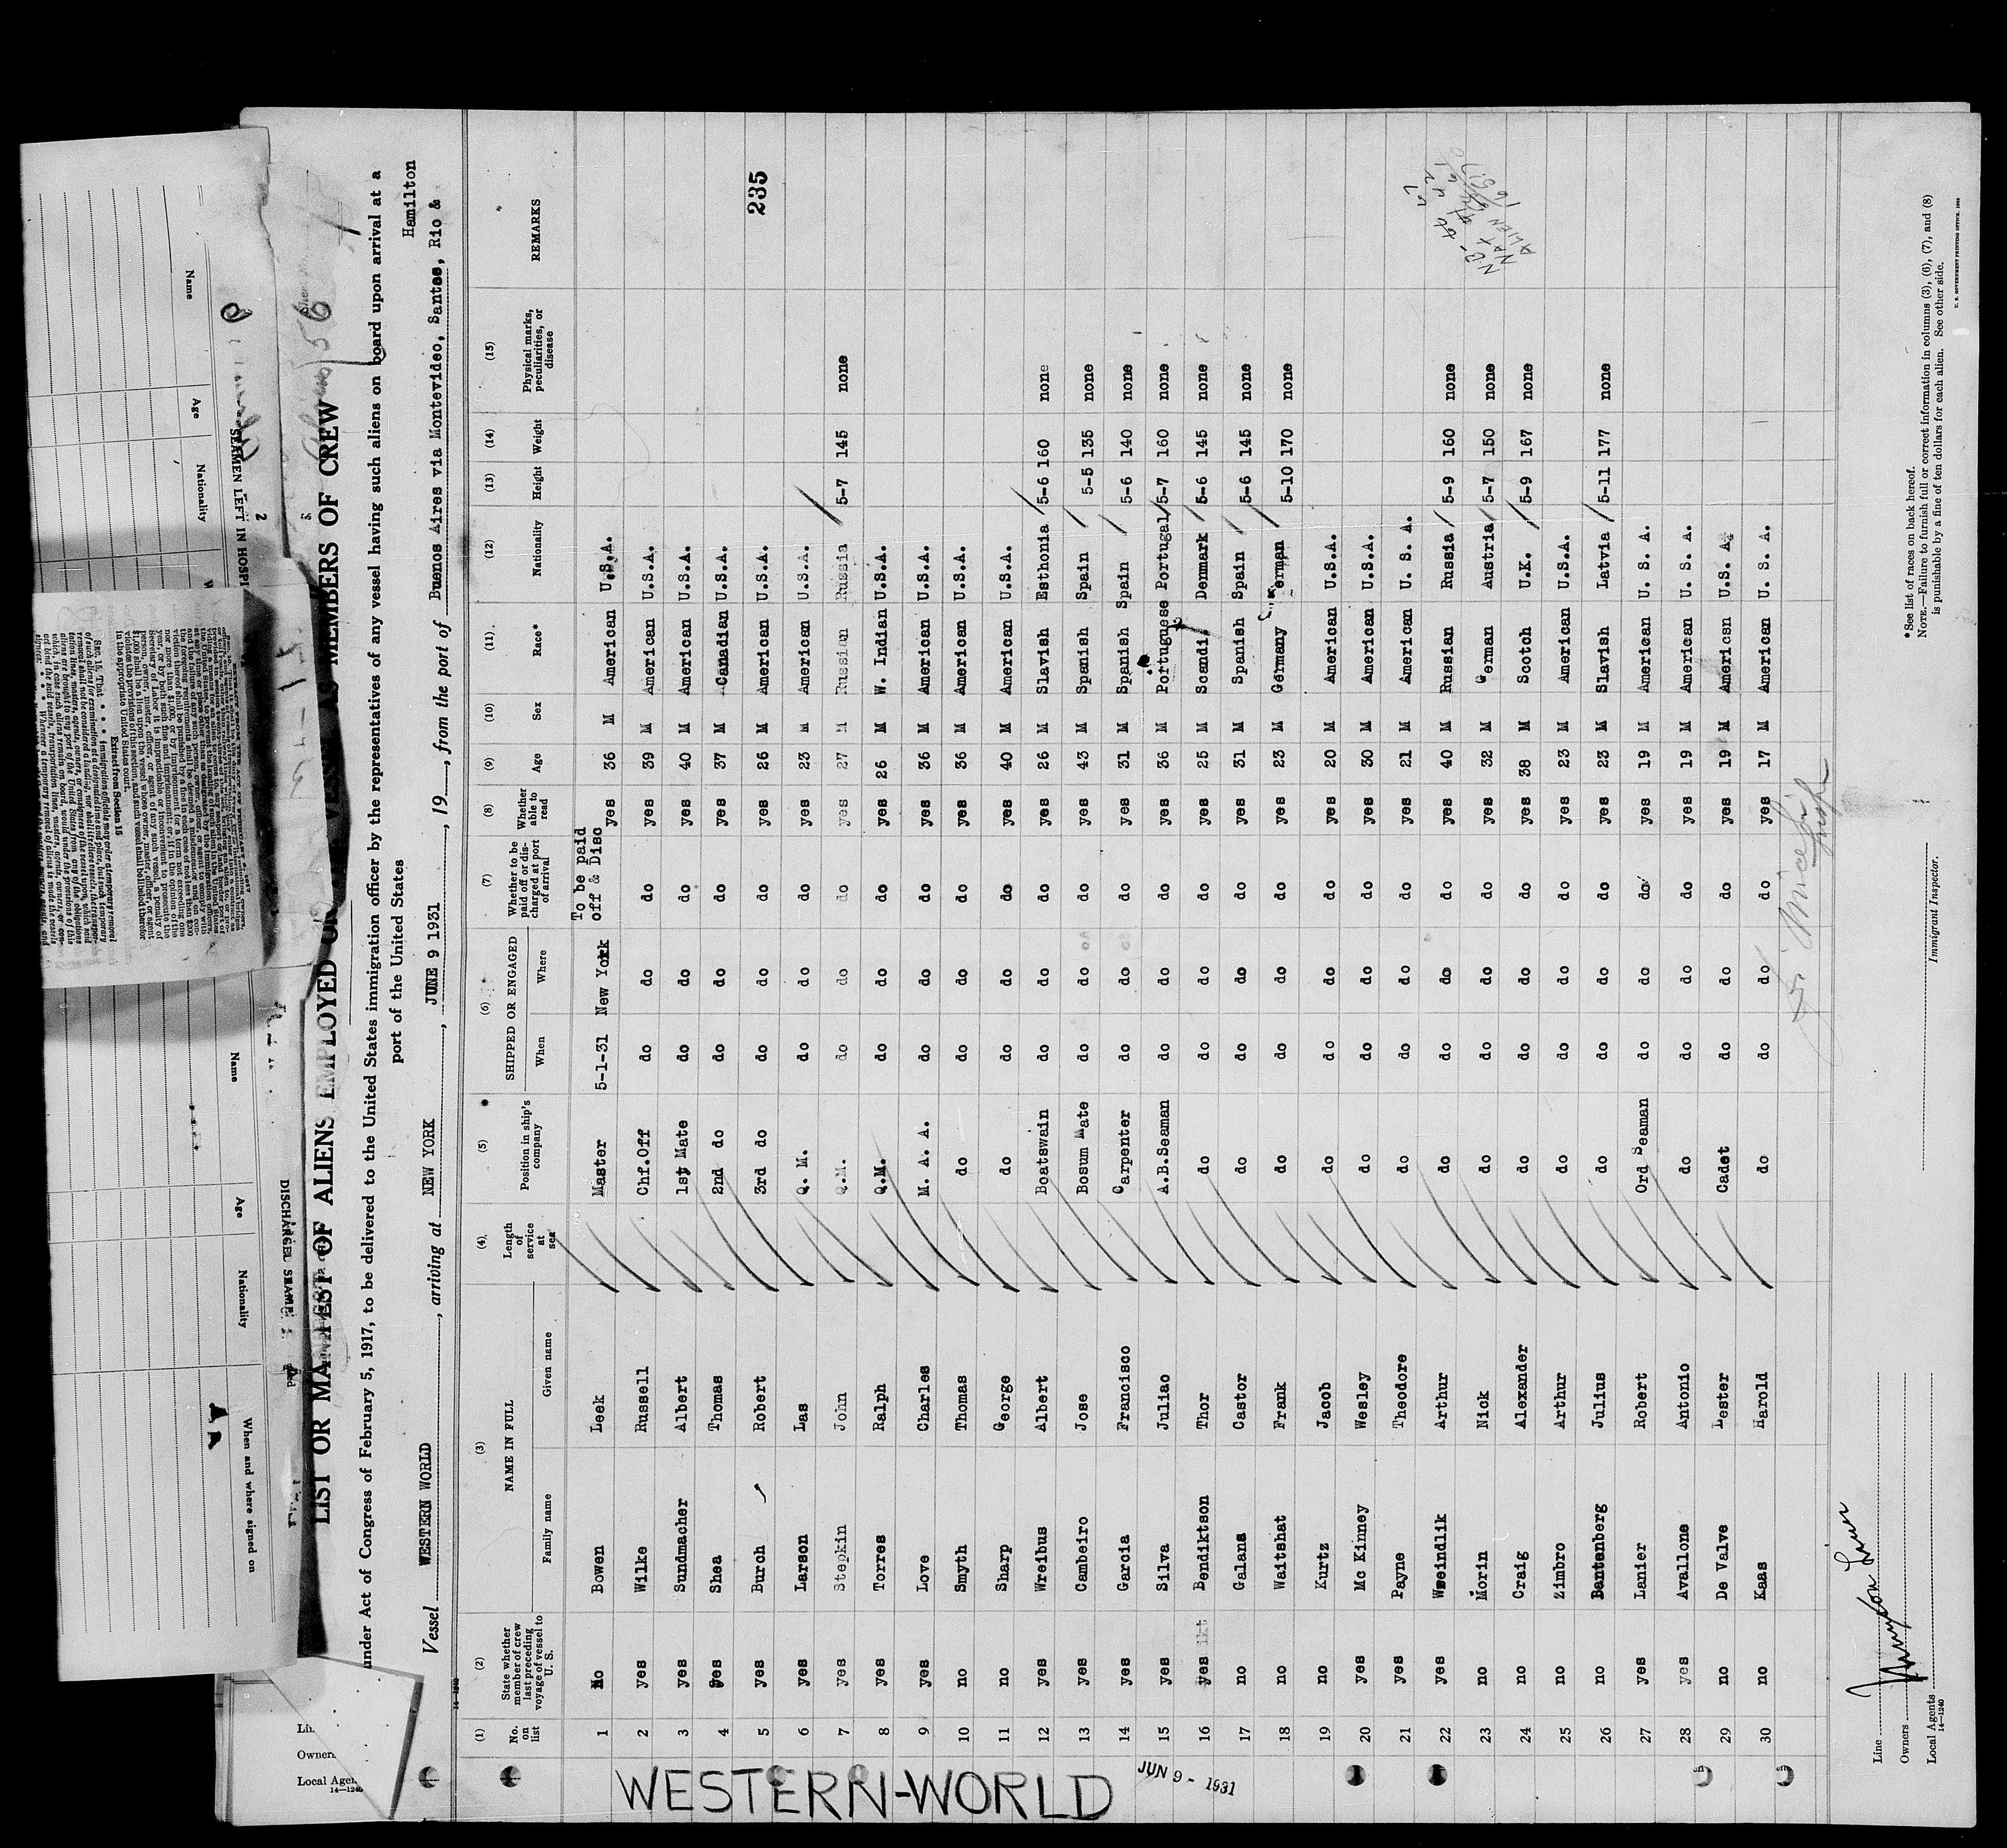 LIST OR MANIFEST OF ALIENS EMPLOYED ON THE VESSEL AS MEMBERS OF CREW
under Act of Congress of February 5, 1917, to be delivered to the United States immigration officer by the representatives of any vessel having such aliens on board upon arrival at a
port of the United States
Hamilton
Vessel WESTERN WORLD, arriving at NEW YORK, JUNE 9 1931, 19, from the port of Buenos Aires via Montevideo, Santos, Rio &
(1) (2) (3) (4) (5) (6) (7) (8) (9) (10) (11) (12) (13) (14) (15)
No. on list State whether member of crew last preceding voyage of vessel to U. S. NAME IN FULL Family name Given name Length of service at sea Position in ship's company SHIPPED OR ENGAGED When Where Whether to be paid off or discharged at port of arrival Whether able to read Age Sex Race* Nationality Height Weight Physical marks, peculiarities, or disease REMARKS
1 No Bowen Leek Master 5-1-31 New York To be paid off & Disc yes 36 M American U.S.A.
2 yes Wilke Russell Chf.Off do do do yes 39 M American U.S.A.
3 yes Sundmacher Albert 1st Mate do do do yes 40 M American U.S.A.
4 yes Shea Thomas 2nd do do do do yes 37 M Canadian U.S.A.
5 yes Burch Robert 3rd do do do do yes 26 M American U.S.A.
235
6 yes Larson Las Q. M. do do do yes 23 M American U.S.A.
7 yes Stepkin John Q.M. do do do yes 27 M Russian Russia 5-7 145 none
8 yes Torres Ralph Q.M. do do do yes 26 M W. Indian U.S.A.
9 yes Love Charles M. A. A. do do do yes 36 M American U.S.A.
10 no Smyth Thomas do do do do yes 36 M American U.S.A.
11 no Sharp George do do do do yes 40 M American U.S.A.
12 yes Wreibus Albert Boatswain do do do yes 26 M Slavish Esthonia 5-6 160 none
13 yes Cambeiro Jose Bosum Mate do do do yes 43 M Spanish Spain 5-5 135 none
14 yes Garcia Francisco Carpenter do do do yes 31 M Spanish Spain 5-6 140 none
15 yes Silva Juliao A.B.Seaman do do do yes 36 M Portuguese Portugal 5-7 160 none
16 yes Bendiktson Thor do do do do yes 25 M Scandi Denmark 5-6 145 none
17 no Galans Castor do do do do yes 31 M Spanish Spain 5-6 145 none
18 no Waitshat Frank do do do do yes 23 M Germany German 5-10 170 none
19 no Kurtz Jacob do do do do yes 20 M American U.S.A.
20 yes Mc Kinney Wesley do do do do yes 30 M American U.S.A.
21 yes Payne Theodore do do do do yes 21 M American U. S. A.
22 yes Weindlik Arthur do do do do yes 40 M Russian Russia 5-9 160 none
23 no Morin Nick do do do do yes 32 M German Austria 5-7 150 none
24 no Craig Alexander do do do do yes 38 M Scotch U.K. 5-9 167 none
25 no Zimbro Arthur do do do do yes 23 M American U.S.A.
26 no Bantenberg Julius do do do do yes 23 M Slavish Latvia 5-11 177 none
27 yes Lanier Robert Ord Seaman do do do yes 19 M American U. S. A.
28 yes Avallone Antonio do do do do yes 19 M American U. S. A.
29 no De Valve Lester Cadet do do do yes 19 M American U.S. A.
30 no Kaas Harold do do do do yes 17 M American U. S. A.
Line
Owners
Local Agents
14—1240
Immigrant Inspector.
*See list of races on back hereof.
NOTE.—Failure to furnish full or correct information in columns (3), (6), (7), and (8)
is punishable by a fine of ten dollars for each alien. See other side.
U. S. GOVERNMENT PRINTING OFFICE
WESTERN-WORLD
JUN 9 - 1931
SEAMEN LEFT IN HOSPI
Name Age Nationality
DISCHARGED SEAMEN
Name Age Nationality When and where signed on
Extract from Section 15
Local Agen
14—1240